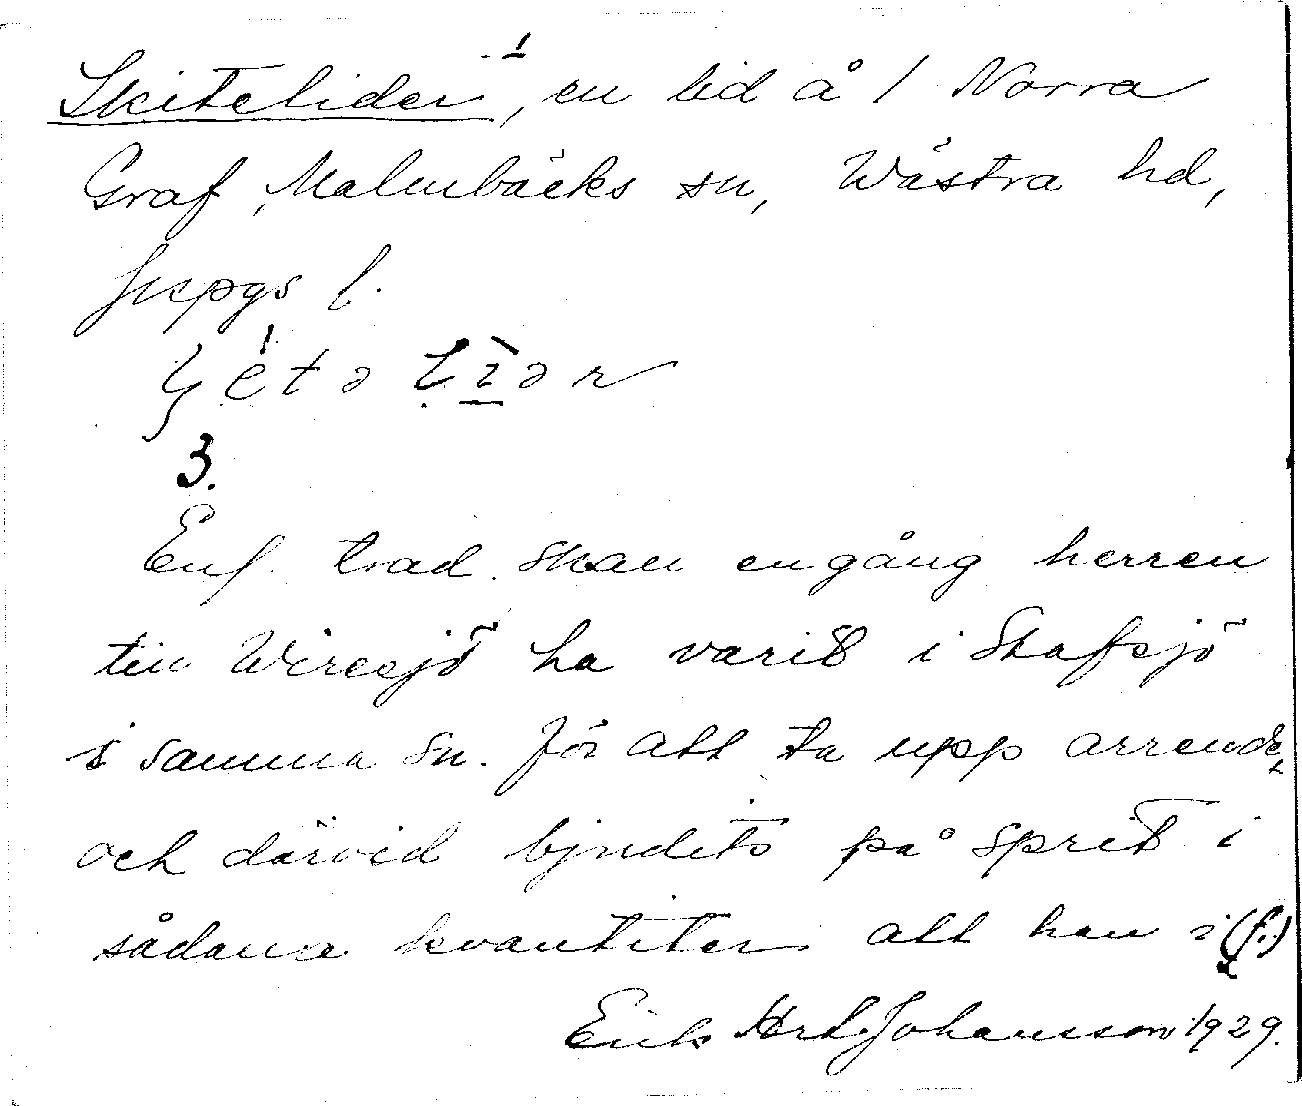 Skitelider¹, en lid å 1 Norra
Graf, Malmbäcks sn, Wästra hd,
Jnkpgs l.
3.
Enl. trad. skall en gång herren
till Wiresjö ha varit i Stafsjö
i samma sn. för att ta upp arrende,
och därvid bjudits på sprit i
sådana kvantiteter att han i (f.)
Erik Johansson 1929.